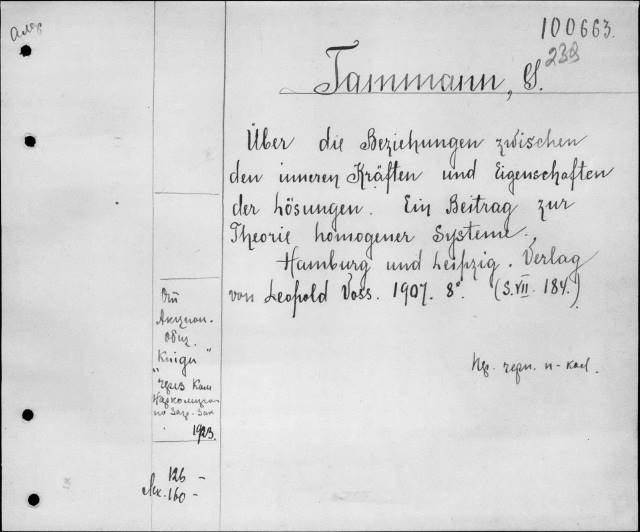 100663.
239
Tammann, G.
Über die Beziehungen zwischen
den inneren Kräften und Eigenschaften
der Lösungen. Ein Beitrag zur
Theorie homogener Systeme.
Hamburg und Leipzig. Verlag
von Leopold Voss. 1907. 8°. (S. VII. 184.)
От
Акцион.
Общ.
"Книга"
через Ком
по Загр. Зак
1923
126 -
160 -